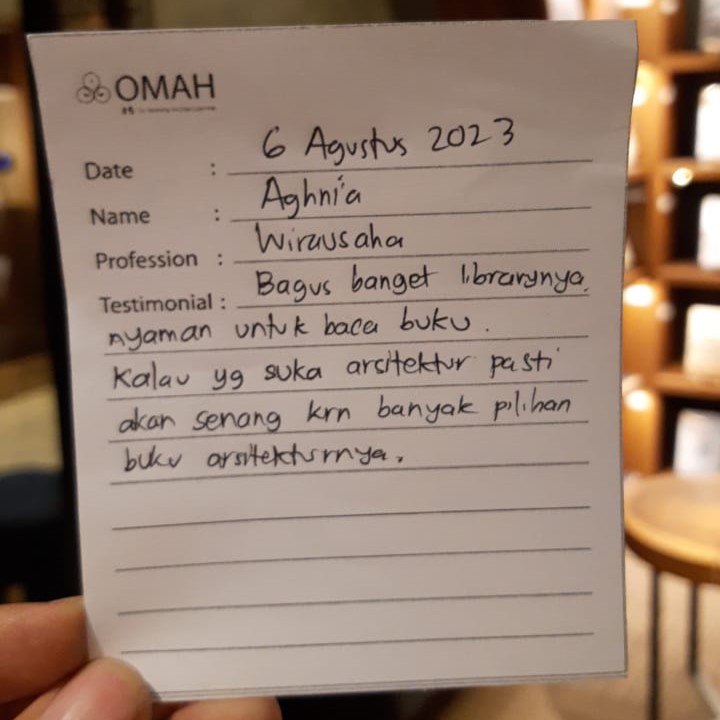 OMAH
Date : 6 Agustus 2023
Name : Aghnia
Profession : Wirausaha
Testimonial : Bagus banget librarynya.
nyaman untuk baca buku.
Kalau yg suka arsitektur pasti
akan senang krn banyak pilihan
buku arsitekturnya.